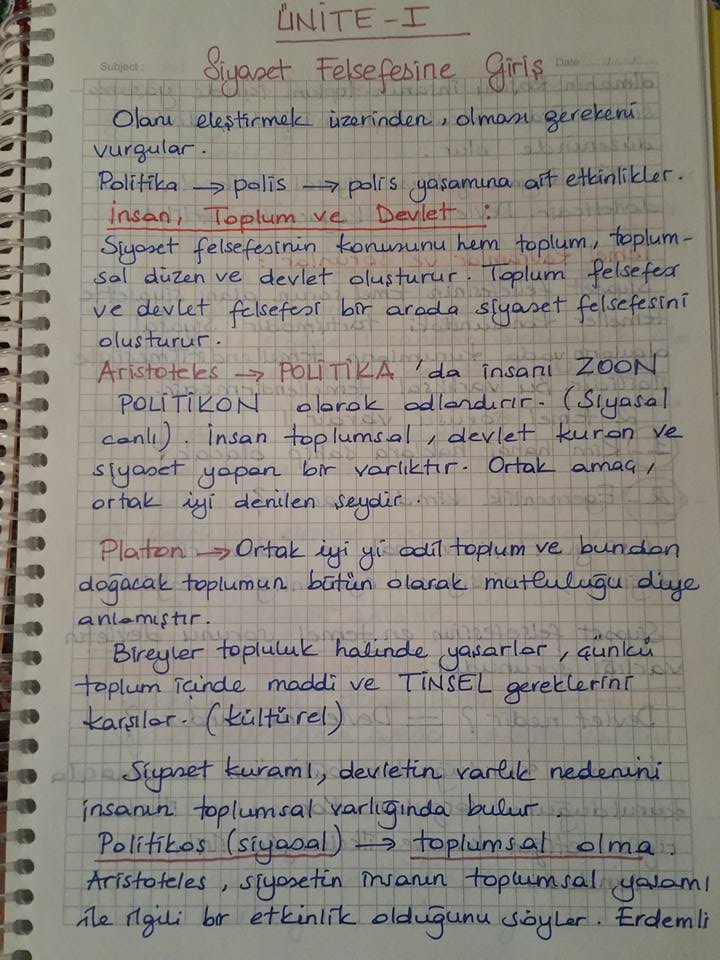 ÜNİTE - I
Subject: Date ....../....../......
Siyaset Felsefesine Giriş
Olanı eleştirmek üzerinden, olması gerekeni
vurgular.
Politika → polis → polis yaşamına ait etkinlikler.
İnsan, Toplum ve Devlet :
Siyaset felsefesinin konusunu hem toplum, toplum-
sal düzen ve devlet oluşturur. Toplum felsefesi
ve devlet felsefesi bir arada siyaset felsefesini
oluşturur.
Aristoteles → POLİTİKA 'da insanı ZOON
POLİTİKON olarak adlandırır. (Siyasal
canlı). İnsan toplumsal, devlet kuran ve
siyaset yapan bir varlıktır. Ortak amaç,
ortak iyi denilen şeydir.
Platon → Ortak iyi yi adil toplum ve bundan
doğacak toplumun bütün olarak mutluluğu diye
anlamıştır.
Bireyler topluluk halinde yaşarlar, çünkü
toplum içinde maddi ve TİNSEL gereklerini
karşılar. (kültürel)
Siyaset kuramı, devletin varlık nedenini
insanın toplumsal varlığında bulur.
Politikos (siyasal) → toplumsal olma.
Aristoteles, siyasetin insanın toplumsal yaşamı
ile ilgili bir etkinlik olduğunu söyler. Erdemli